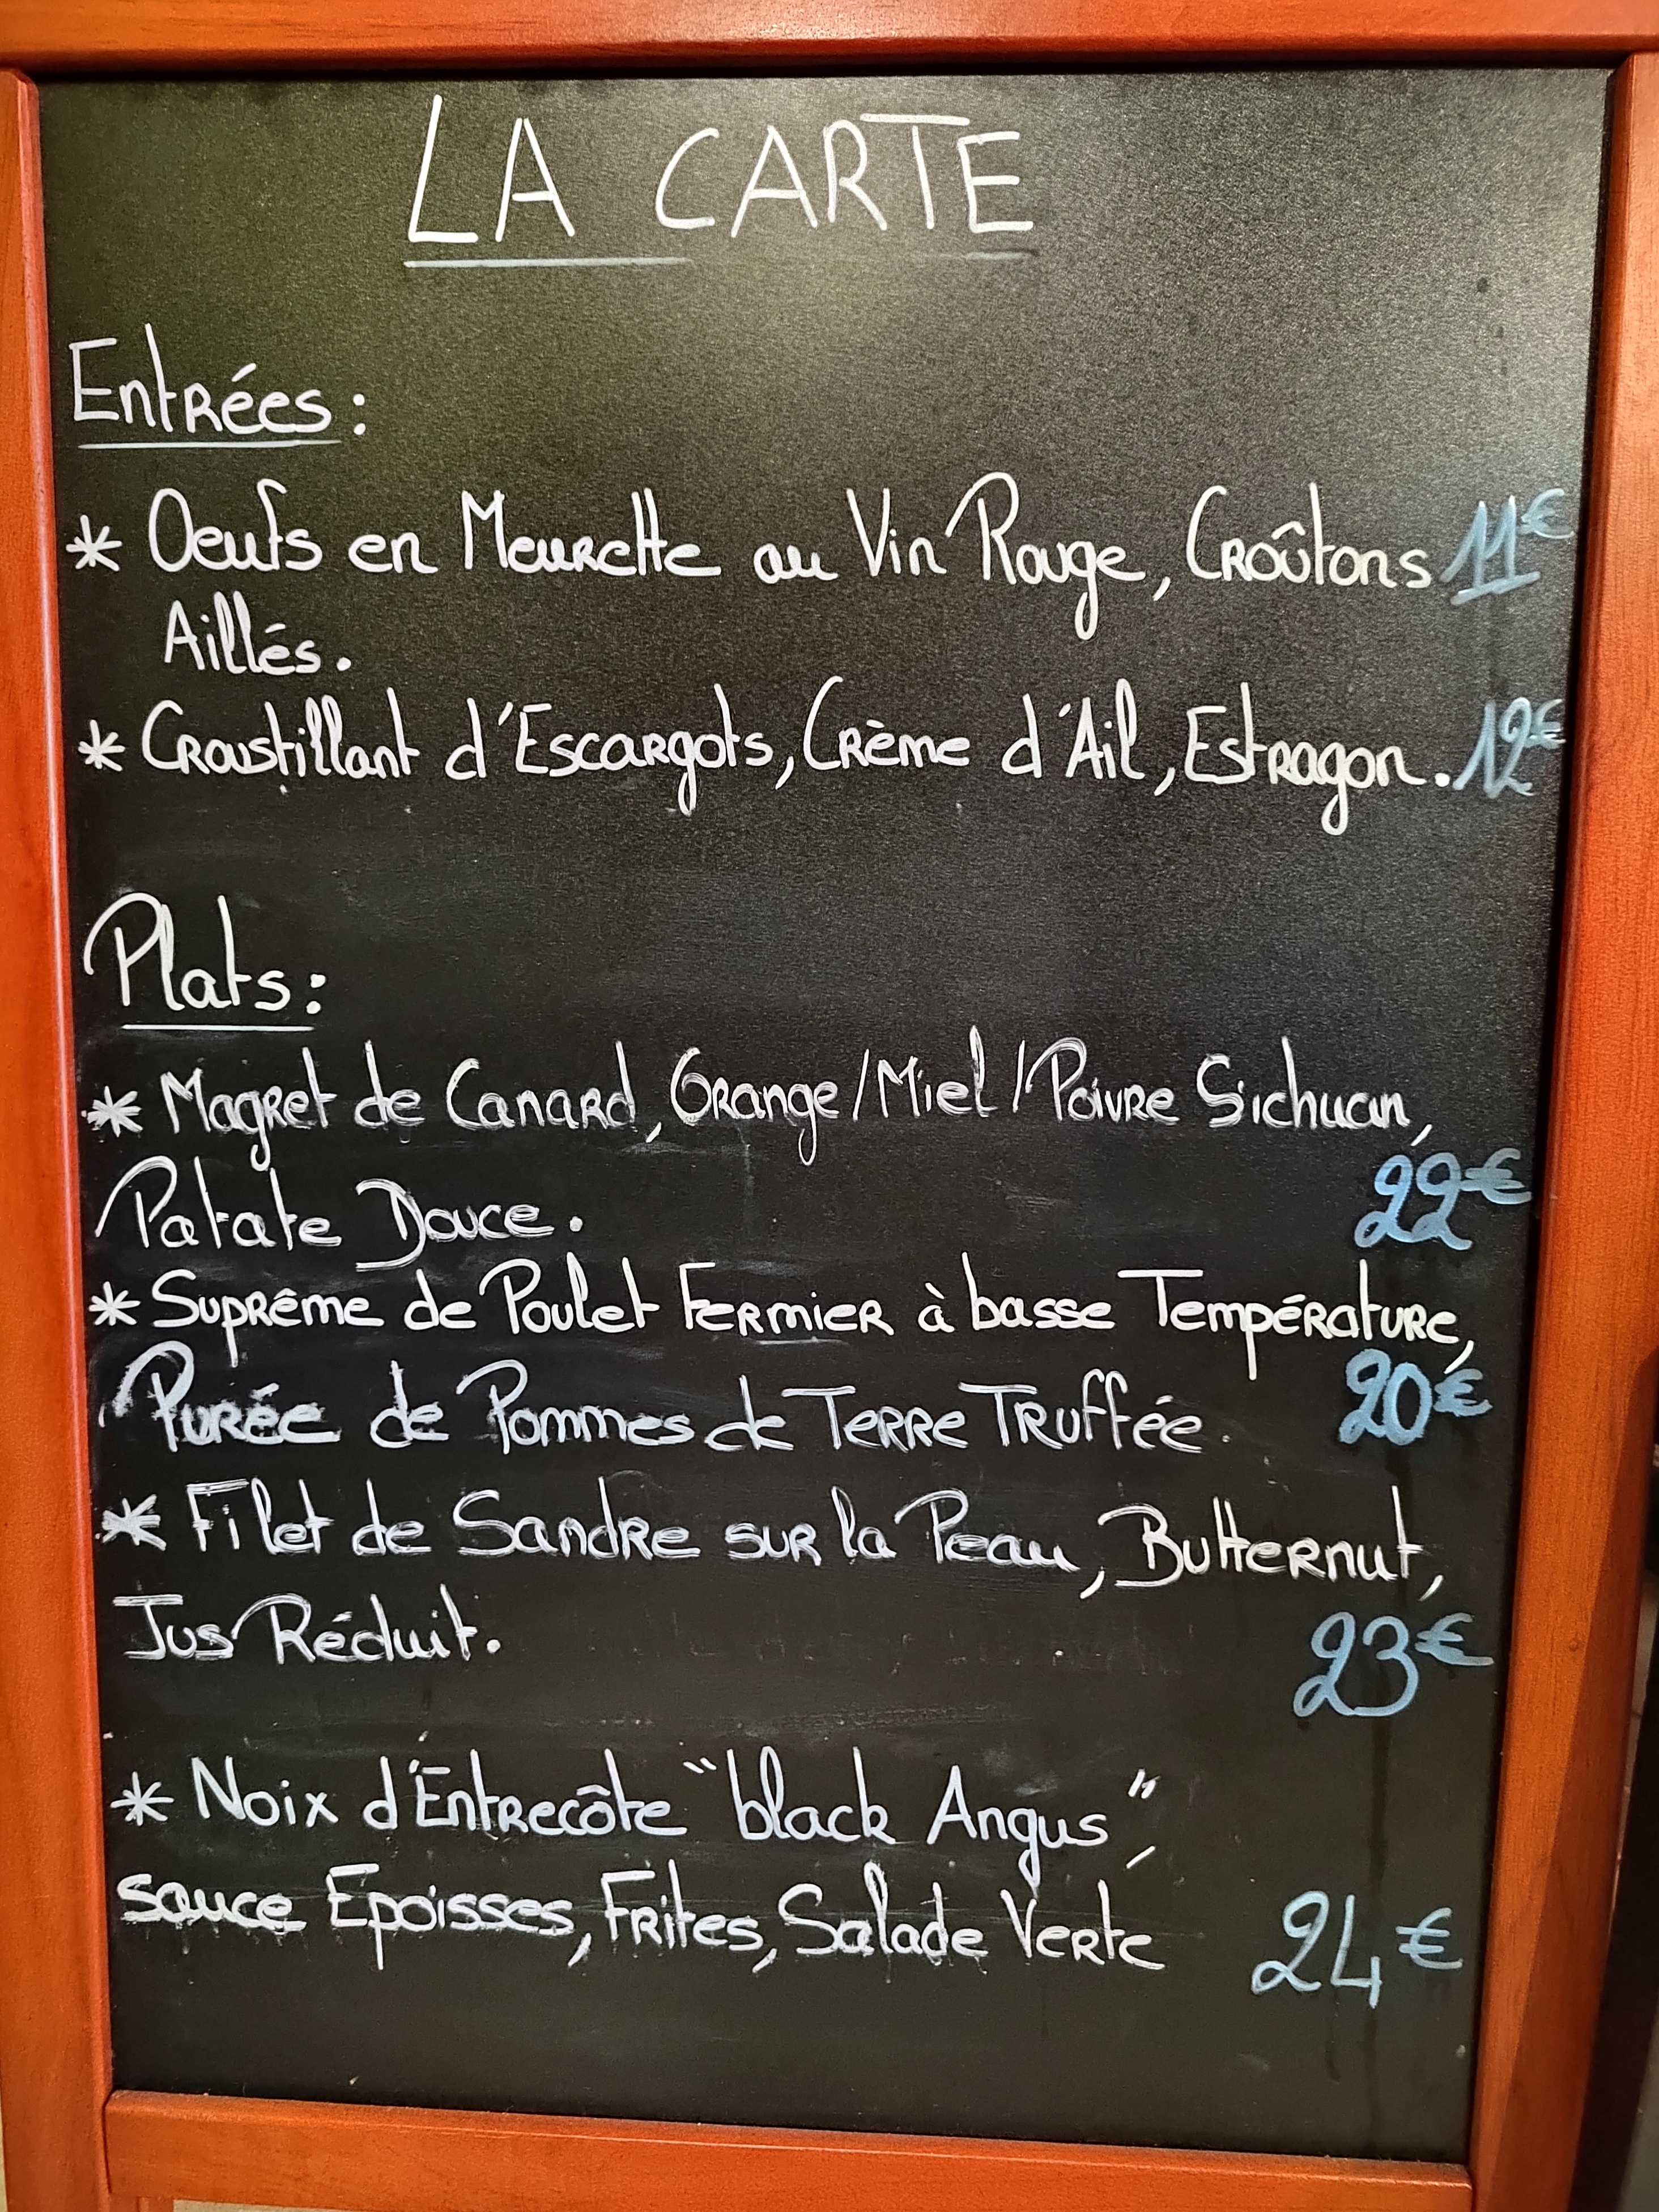 LA CARTE
Entrées :
* Oeufs en Meurette au Vin Rouge, Croûtons 11€
Aillés.
* Croustillant d'Escargots, Crème d'Ail, Estragon. 12€
Plats :
* Magret de Canard, Orange/Miel/Poivre Sichuan,
Patate Douce. 22€
* Suprême de Poulet Fermier à basse Température,
Purée de Pommes de Terre Truffée. 20€
* Filet de Sandre sur la Peau, Butternut,
Jus Réduit. 23€
* Noix d'Entrecôte "black Angus",
sauce Epoisses, Frites, Salade Verte 24€